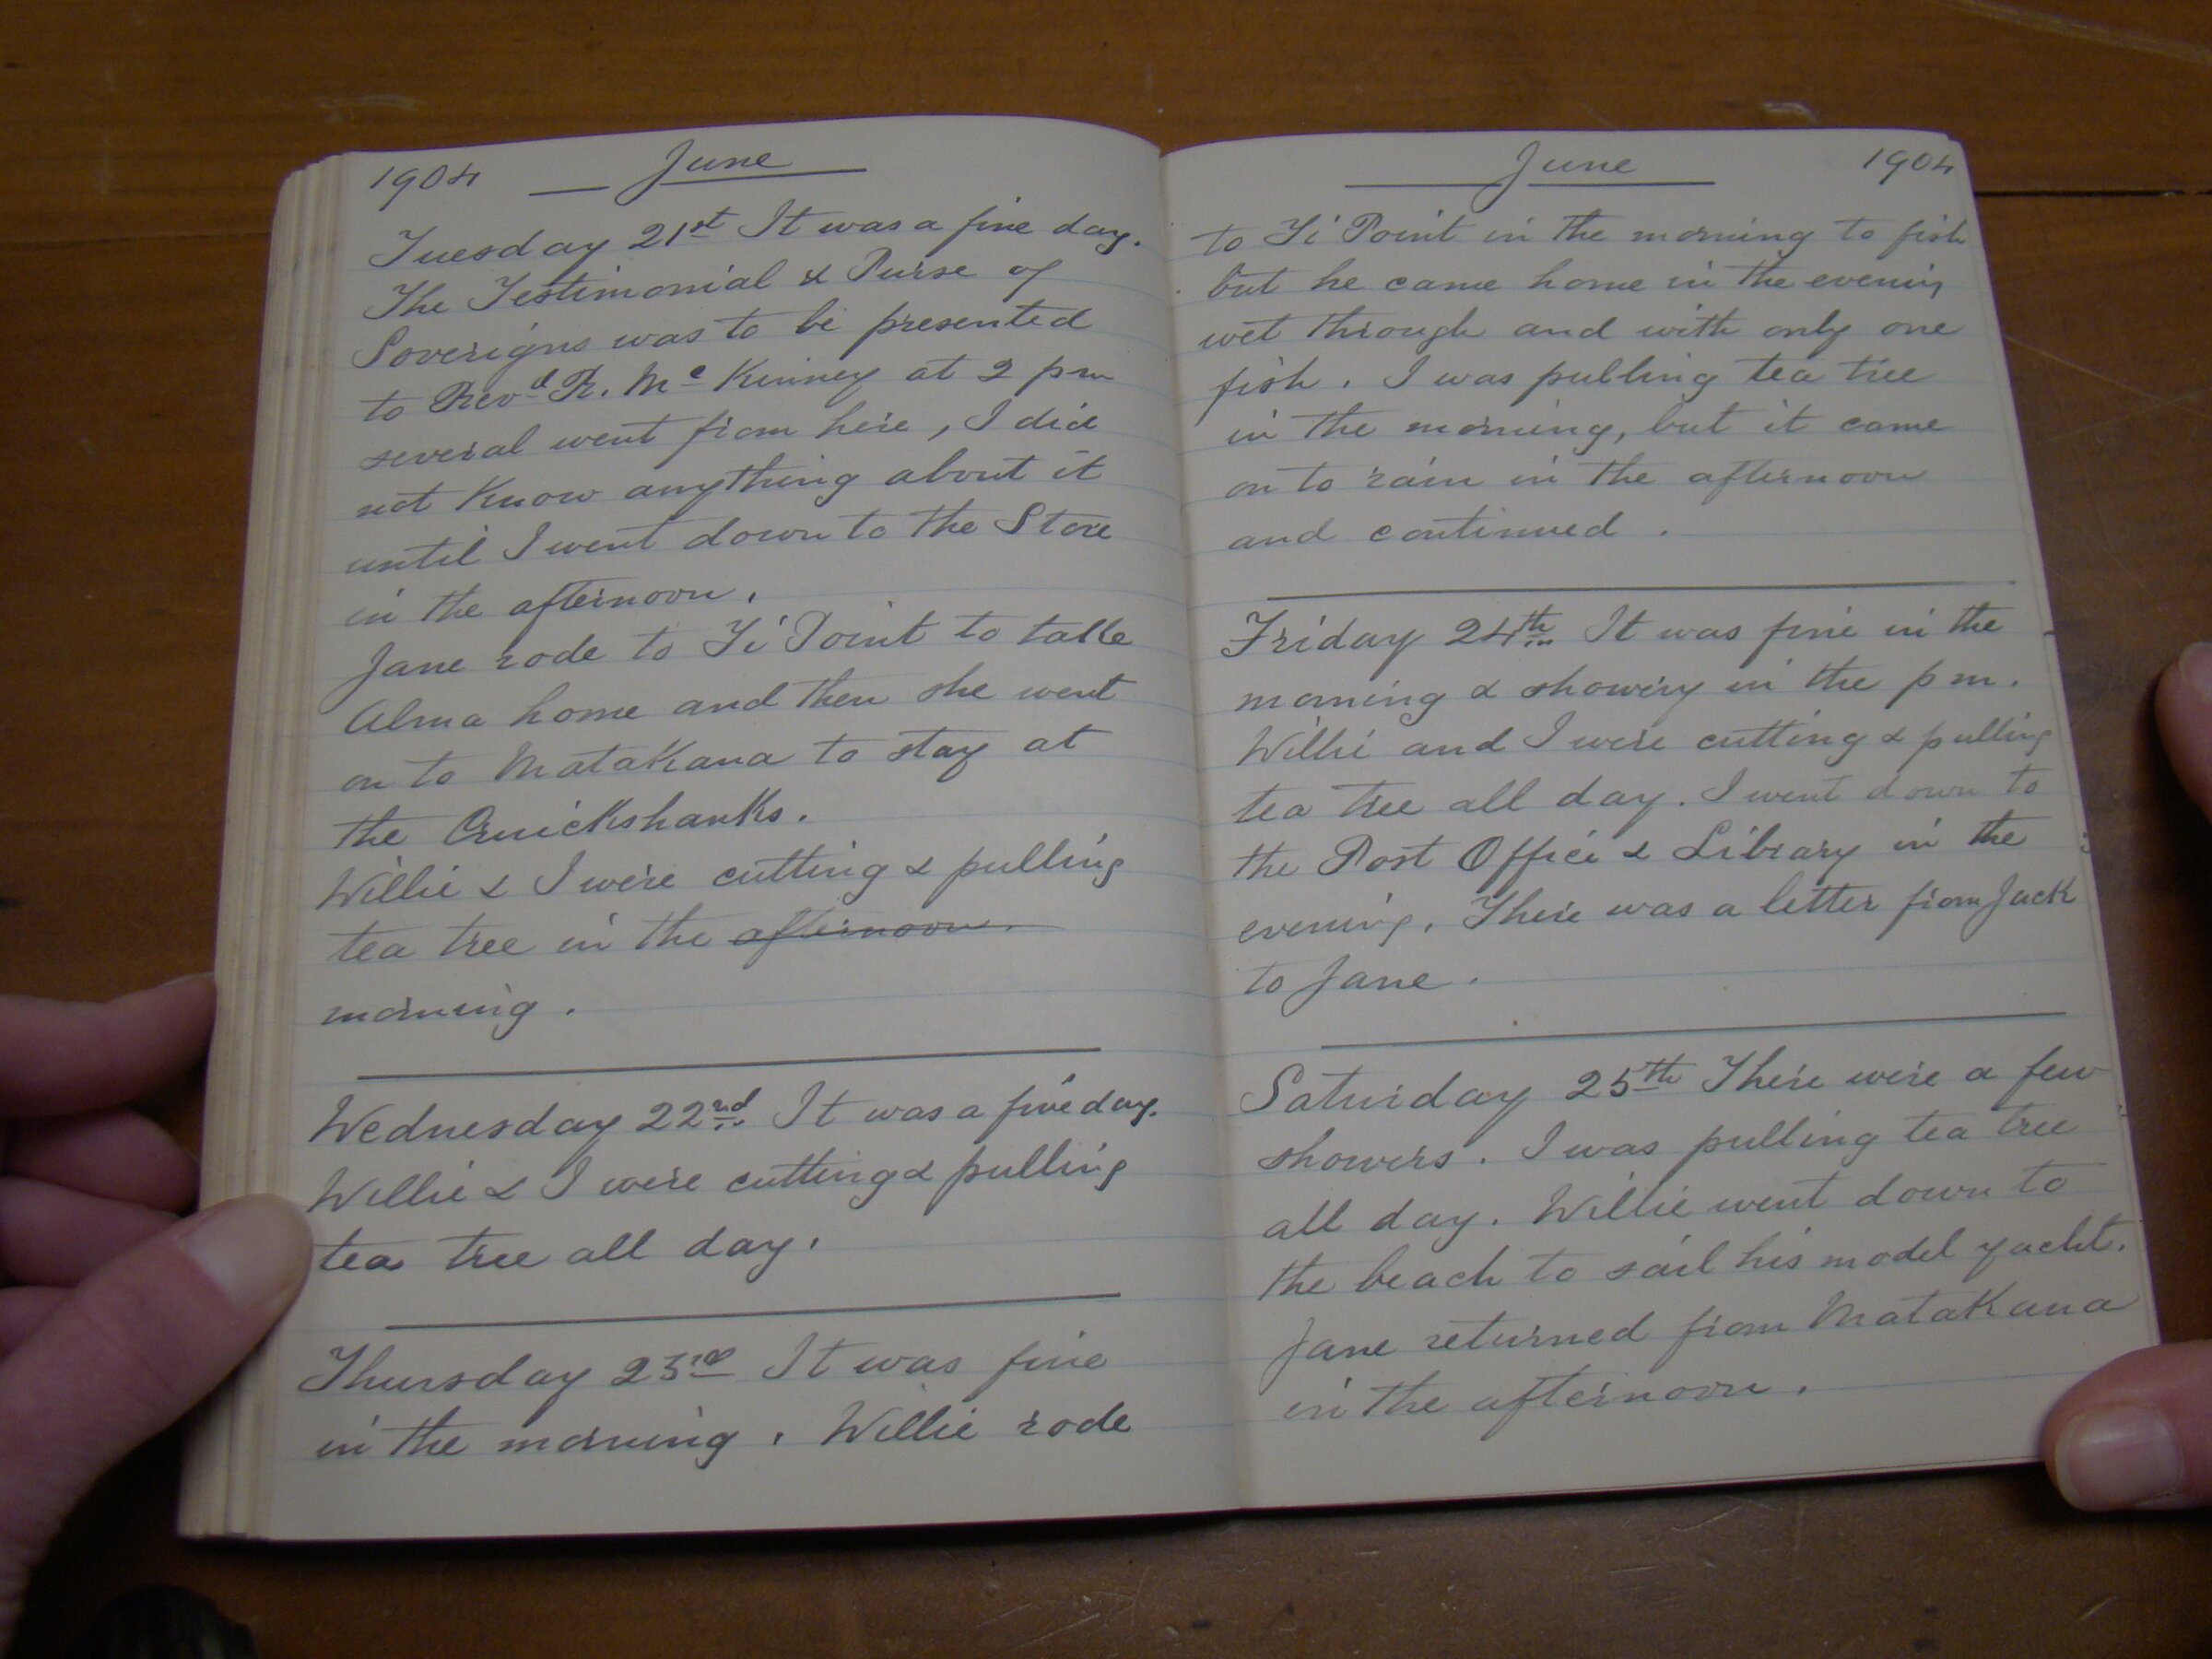 1904 June
Tuesday 21st It was a fine day.
The Testimonial & Purse of
Soverigns was to be presented
to Revd. R. Mc Kinney at 2 pm
several went from here, I did
not Know anything about it
until I went down to the Store
in the afternoon.
Jane rode to Ti Point to take
Alma home and then she went
on to Matakana to stay at
the Cruickshanks.
Willie & I were cutting & pulling
tea tree in the afternoon.
morning.
Wednesday 22nd It was a fine day.
Willie & I were cutting & pulling
tea tree all day.
Thursday 23rd It was fine
in the morning. Willie rode
June 1904
to Ti Point in the morning to fish
but he came home in the evening
wet through and with only one
fish. I was pulling tea tree
in the morning, but it came
on to rain in the afternoon
and continued.
Friday 24th It was fine in the
morning & showery in the pm.
Willie and I were cutting & pulling
tea tree all day. I went down to
the Post Office & Library in the
evening. There was a letter from Jack
to Jane.
Saturday 25th There were a few
showers. I was pulling tea tree
all day. Willie went down to
the beach to sail his model yacht.
Jane returned from Matakana
in the afternoon.